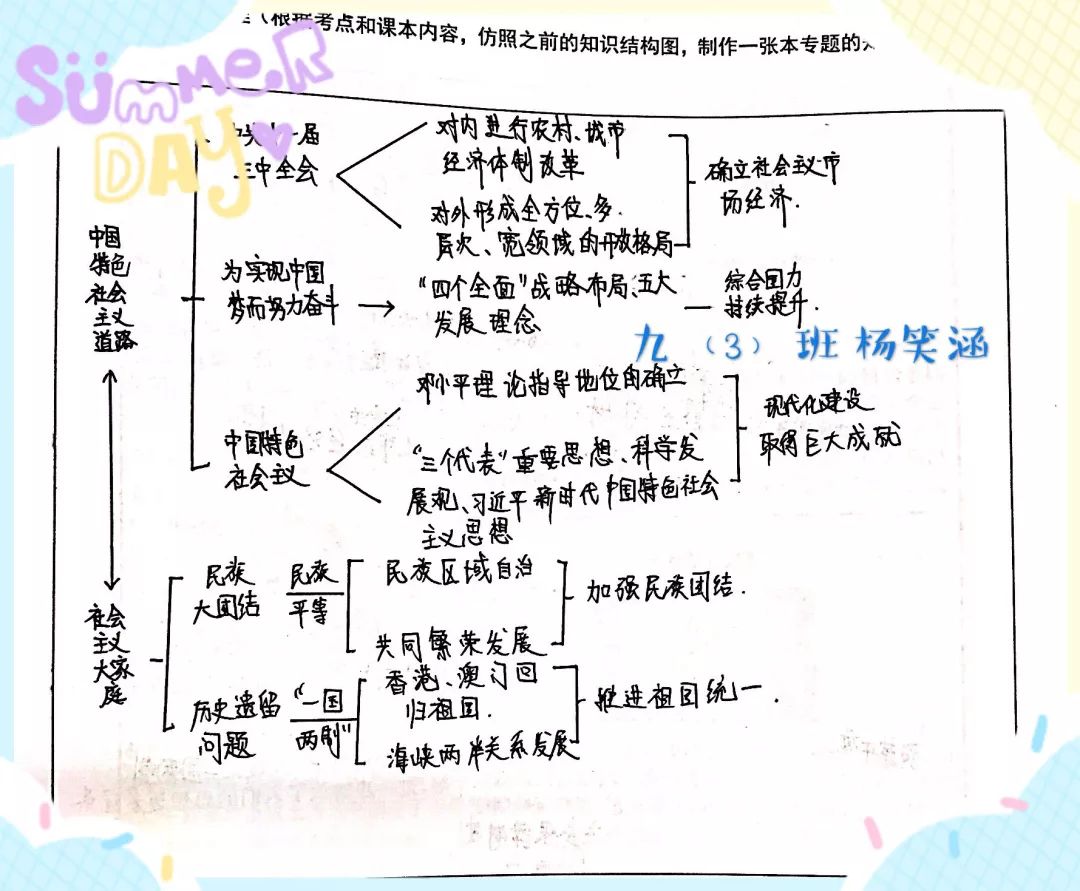 (根据考点和课本内容，仿照之前的知识结构图，制作一张本专题的
SÜmmeR
DAY
一届
三中全会
对内进行农村、城市
经济体制改革
对外形成全方位、多
层次、宽领域的开放格局
确立社会主义市
场经济.
中国
特色
社会
主义
道路
为实现中国
梦而努力奋斗
“四个全面”战略布局、五大
发展理念
综合国力
持续提升.
九（3）班 杨笑涵
中国特色
社会主义
邓小平理论指导地位的确立
“三个代表”重要思想、科学发
展观、习近平新时代中国特色社会
主义思想
现代化建设
取得巨大成就
社会
主义
大家
庭
民族
大团结
民族
平等
民族区域自治
共同繁荣发展
加强民族团结.
历史遗留
问题
“一国
两制”
香港、澳门回
归祖国.
海峡两岸关系发展
推进祖国统一.